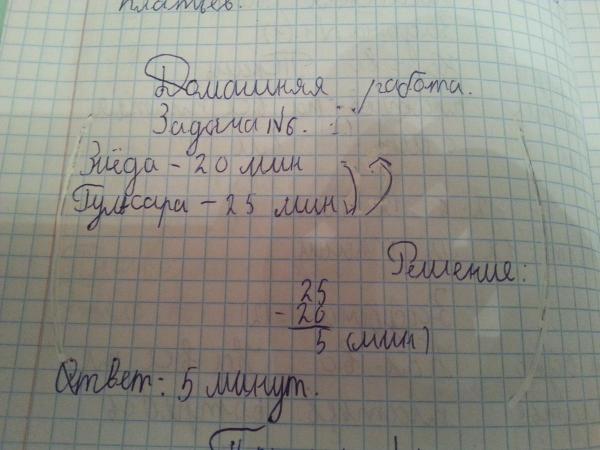 платьев.
Домашняя работа.
Задача №6.
Зиёда - 20 мин
Гульсара - 25 мин
Решение:
25
- 20
5 (мин)
Ответ: 5 минут.